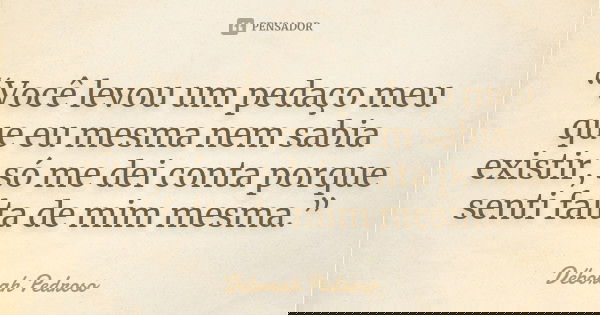 PENSADOR
“Você levou um pedaço meu
que eu mesma nem sabia
existir, só me dei conta porque
senti falta de mim mesma.”
Déborah Pedroso